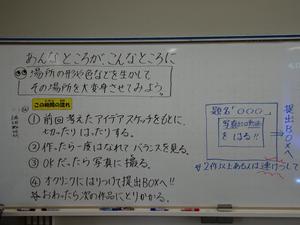 あんなところが、こんなところに
場所の形や色などを生かして、
その場所を大変身させてみよう。
この時間の流れ
① 前回考えたアイデアスケッチをもとに、
切ったりはったりする。
② 作ったら一度はなれてバランスを見る。
③ OKだったら写真に撮る。
④ オクリンクにはりつけて提出BOXへ!!
☆おわったら次の作品にとりかかる。
題名「〇〇〇」
写真
をはる!!
提出BOXへ